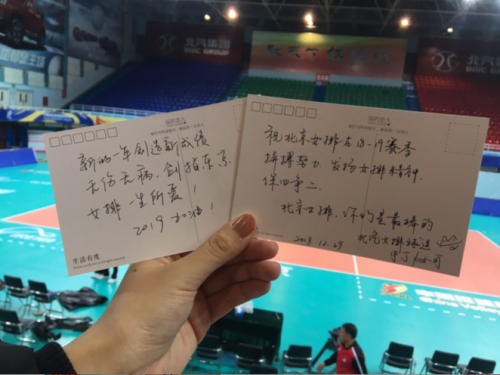 北汽集团
BAIC GROUP
新的一年创造新成绩
无伤无病,剑指东京
女排一生所爱!
2019加油!
生活有度
祝北京女排在18-19赛季
拼搏努力 发扬女排精神
保四争二
北京女排,你们是最棒的
2018.12.29
北汽女排球迷